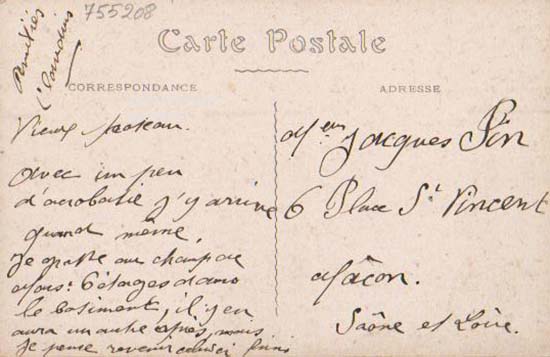 755208
Amitiés
Carte Postale
CORRESPONDANCE
ADRESSE
Vieux
avec un peu
d'acrobatie j'y arrive
quand même,
je gratte au champ de
Mars: 6 étages dans
le batiment, il y en
aura un autre après, mais
je pense revenir
Mr Jacques Pin
6 Place St Vincent
Mâcon.
Saône et Loire.